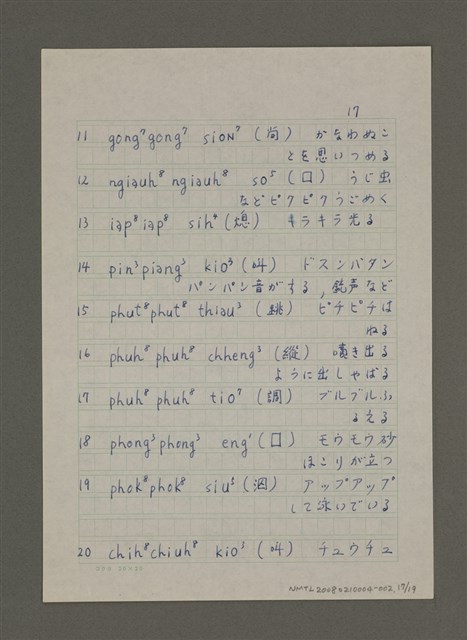 17
11 gong⁷gong⁷ sioN⁷ (尚) かなわぬこ
とを思いつめる
12 ngiauh⁸ ngiauh⁸ so⁵ (口) うじ虫
などピクピクうごめく
13 iap⁸iap⁸ sih⁴ (熄) キラキラ光る
14 pin³piang³ kio³ (叫) ドスンバタン
パンパン音がする, 銃声など
15 phut⁸phut⁸ thiau³ (跳) ピチピチは
ねる
16 phuh⁸ phuh⁸ chheng³ (縱) 噴き出る
ように出しゃばる
17 phuh⁸ phuh⁸ tio⁷ (調) ブルブルふ
るえる
18 phong³phong³ eng¹ (口) モウモウ砂
ほこりが立つ
19 phok⁸phok⁸ siu⁵ (泅) アップアップ
して泳いでいる
20 chih⁸chiuh⁸ kio³ (叫) チュウチュ
NMTL20080210004-002, 17/19